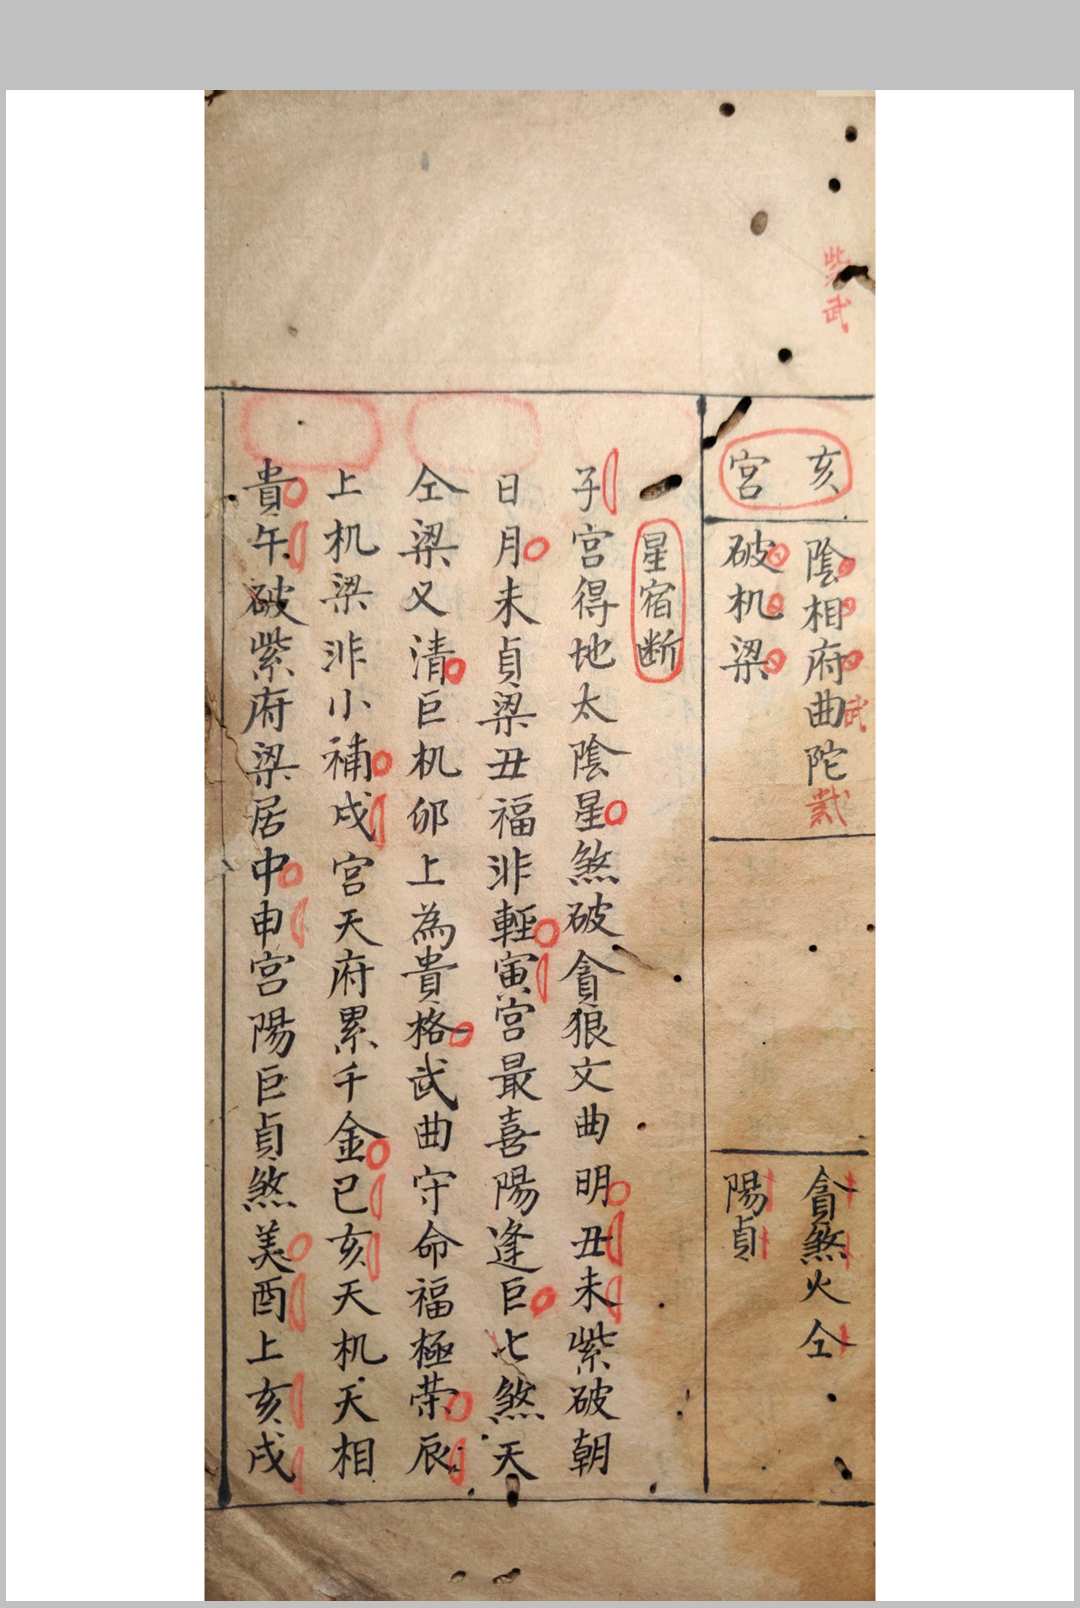 紫武
亥
宮
陰相府曲陀
武
紫
破机梁
貪煞火仝
陽貞
星宿断
子宮得地太陰星煞破貪狼文曲明丑未紫破朝
日月未貞梁丑福非輕寅宮最喜陽逢巨七煞天
仝梁又清巨机卯上為貴格武曲守命福極荣辰
上机梁非小補戌宮天府累千金巳亥天机天相
貴午破紫府梁居中申宮陽巨貞煞美酉上亥戌